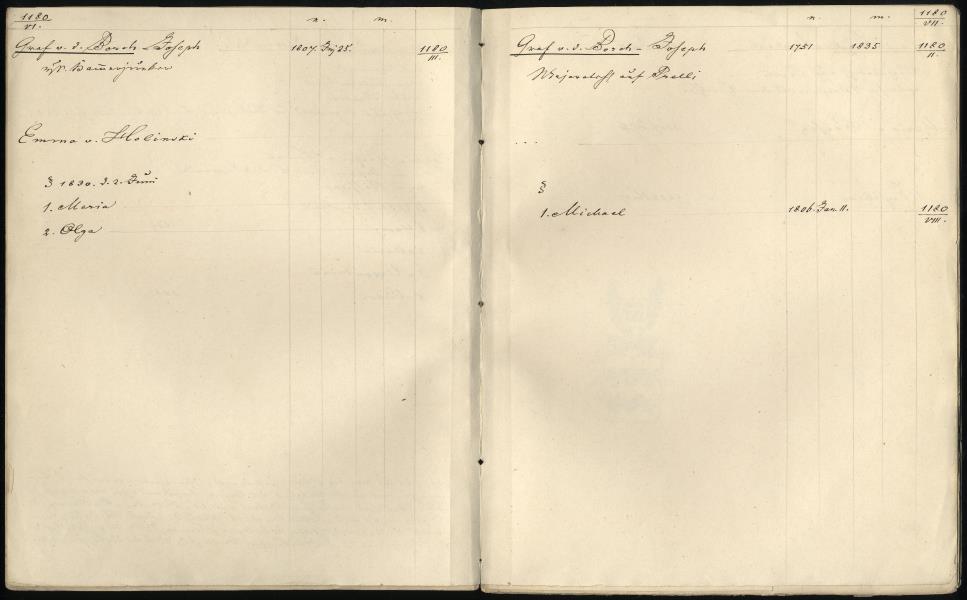 1180 / VI. n. m.
Graf v. d. Borch Joseph 1807. 25. 1180 / III.
Kammerjunker
Emma v. Holinski
§ 1830. d. 2. Juni
1. Maria
2. Olga
n. m. 1180 / VII.
Graf v. d. Borch - Joseph 1751 1835 1180 / II.
Majoratsh. auf Prelli
...
§
1. Michael 1806. Jan. 11. 1180 / VIII.